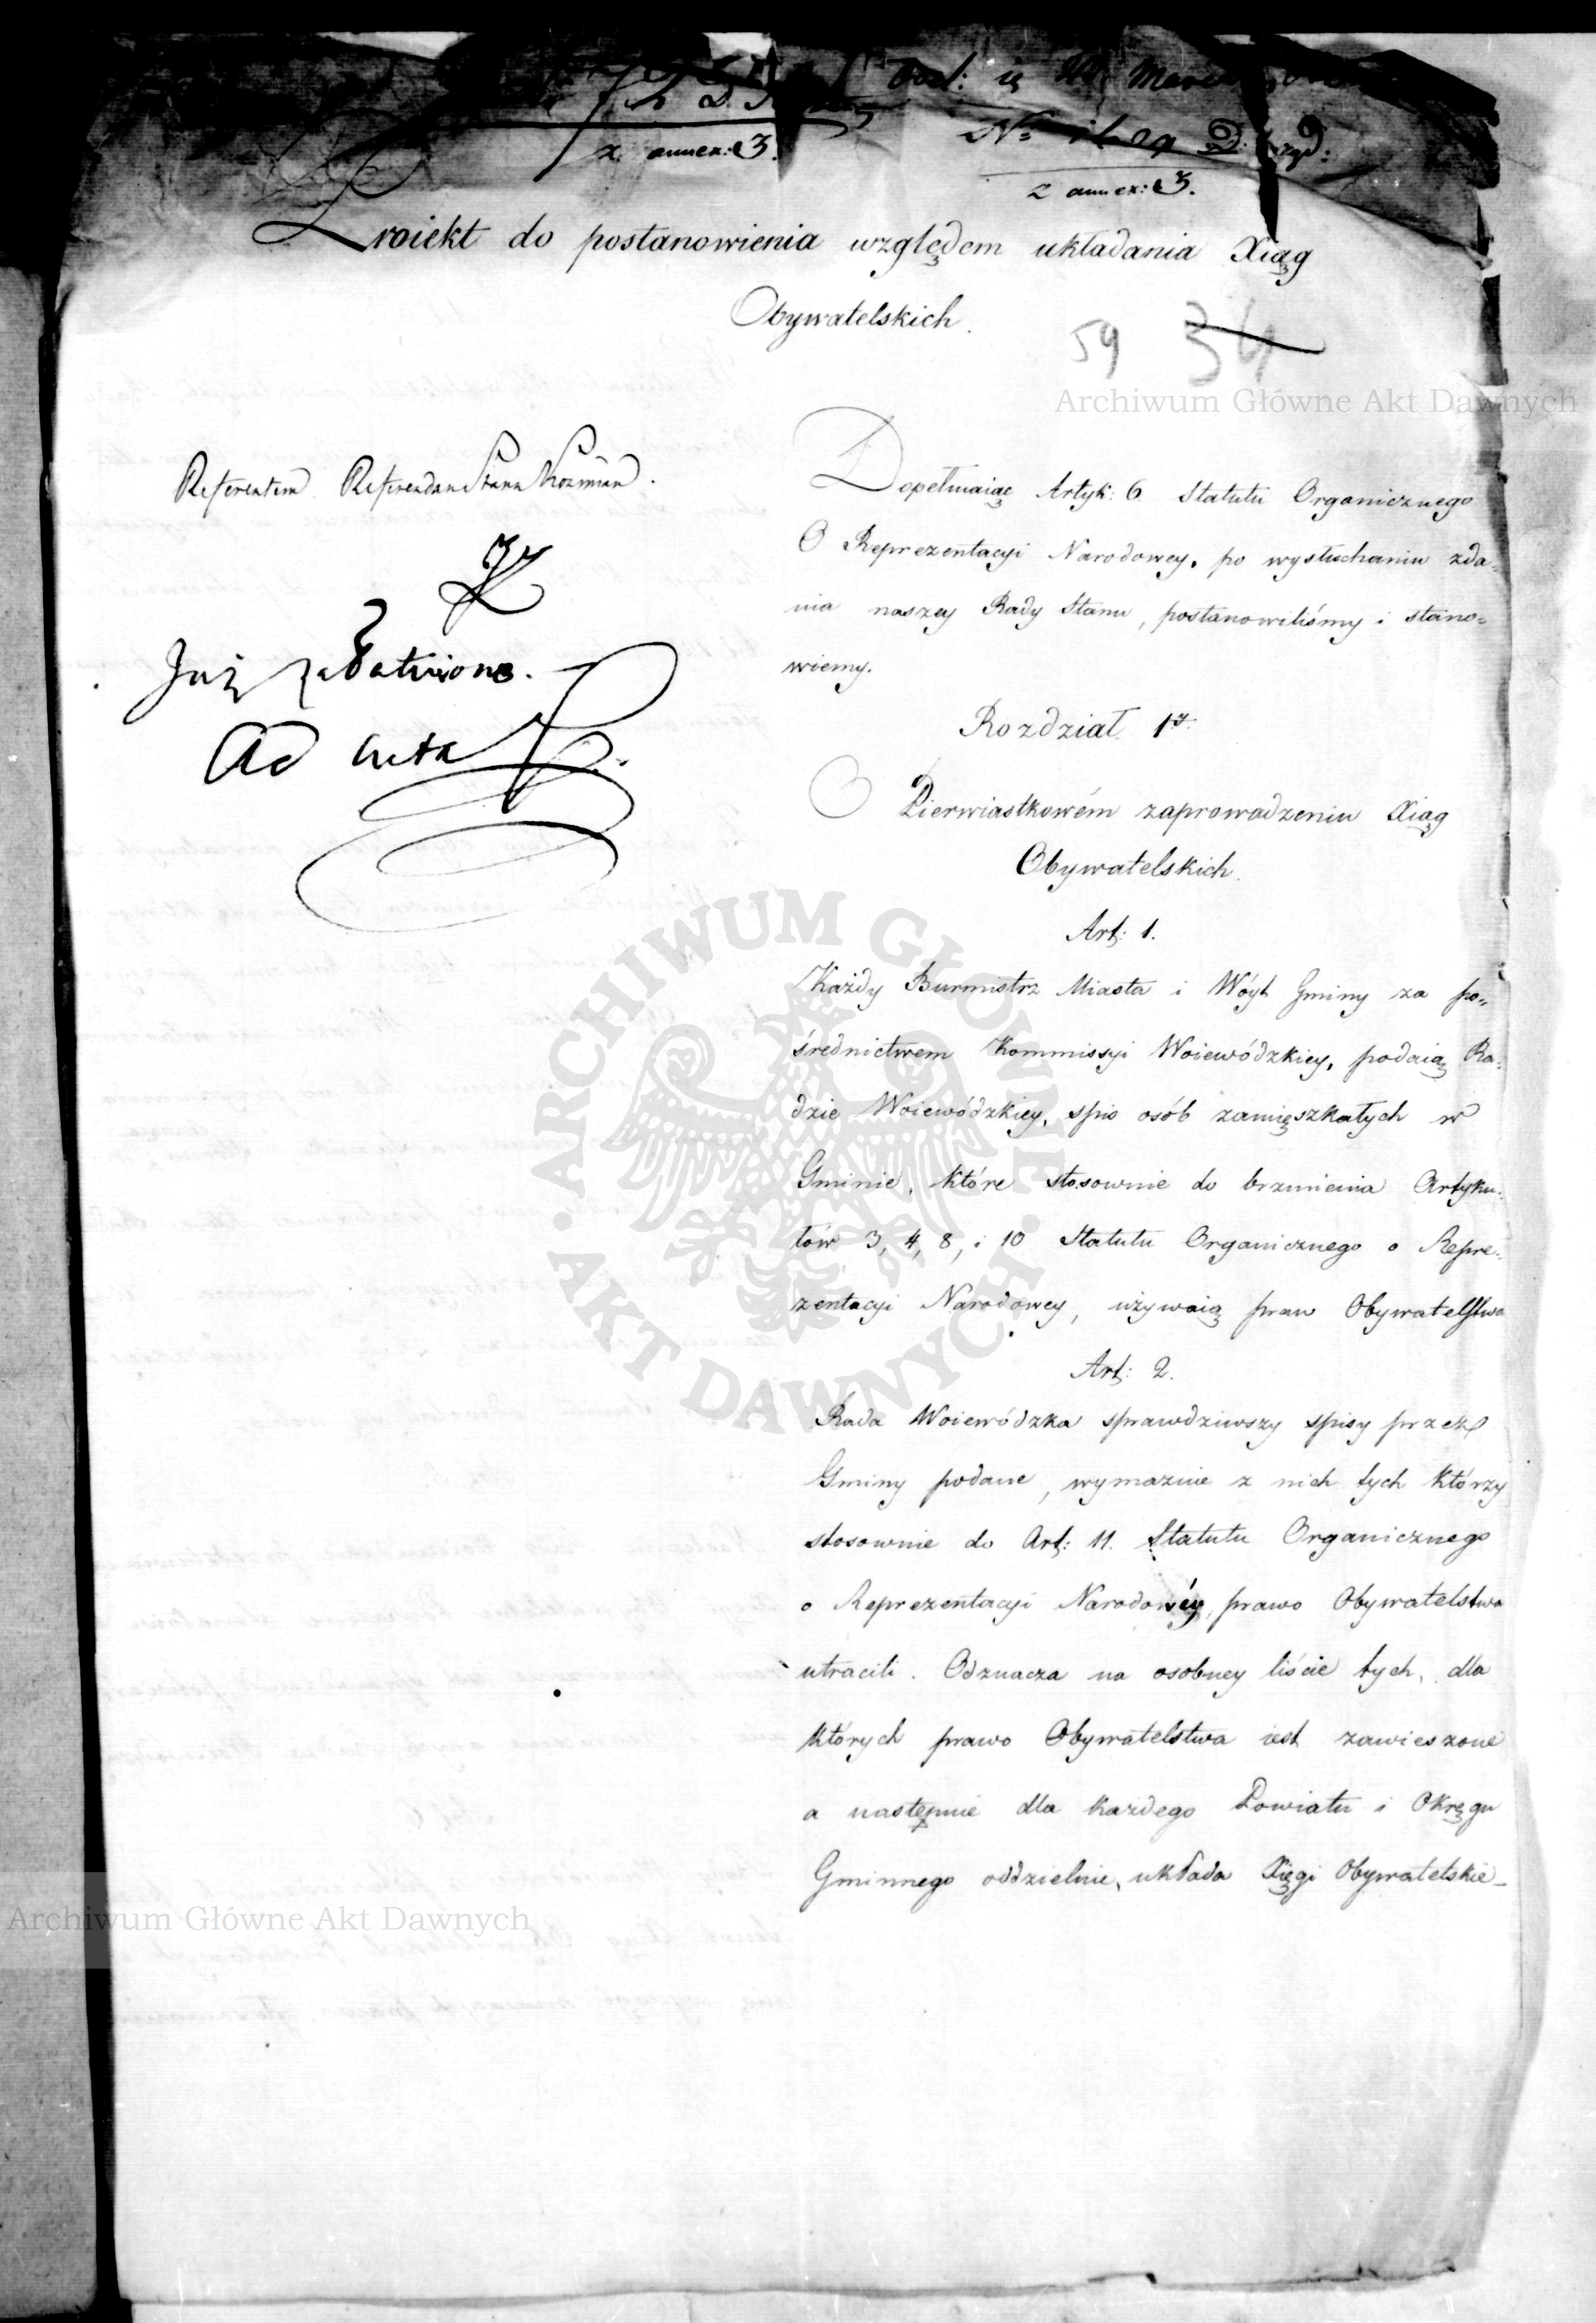 z annex: 3.
z annex: 3.
Proiekt do postanowienia względem układania Xiąg
Obywatelskich.
59 34
Archiwum Główne Akt Dawnych
Referentem Referendarz Stanu Kozmian.
Już załatwione.
Ad acta
Dopełniaiąc Artyk: 6 Statutu Organicznego
O Reprezentacyi Narodowey, po wysłuchaniu zda-
nia naszey Rady Stanu, postanowiliśmy i stano-
wiemy.
Rozdział 1y.
O Pierwiastkowém zaprowadzeniu Xiąg
Obywatelskich.
Art: 1.
Każdy Burmistrz Miasta i Wóyt Gminy za po-
średnictwem Kommissyi Woiewódzkiey, podaią Ra-
dzie Woiewódzkiey, spis osób zamięszkałych w
Gminie, które stosownie do brzmienia Artyku-
łów 3, 4, 8, i 10 Statutu Organicznego o Repre-
zentacyi Narodowey, używaią praw Obywatelstwa
Art: 2.
Rada Woiewódzka sprawdziwszy spisy przez
Gminy podane, wymaznie z nich tych którzy
stosownie do Art: 11. Statutu Organicznego
o Reprezentacyi Narodowéy, prawo Obywatelstwa
utracili. Odznacza na osobney liście tych, dla
których prawo Obywatelstwa iest zawieszone
a następnie dla każdego Powiatu i Okręgu
Gminnego oddzielnie, układa Xięgi Obywatelskie_
ARCHIWUM GŁÓWNE · AKT DAWNYCH ·
Archiwum Główne Akt Dawnych